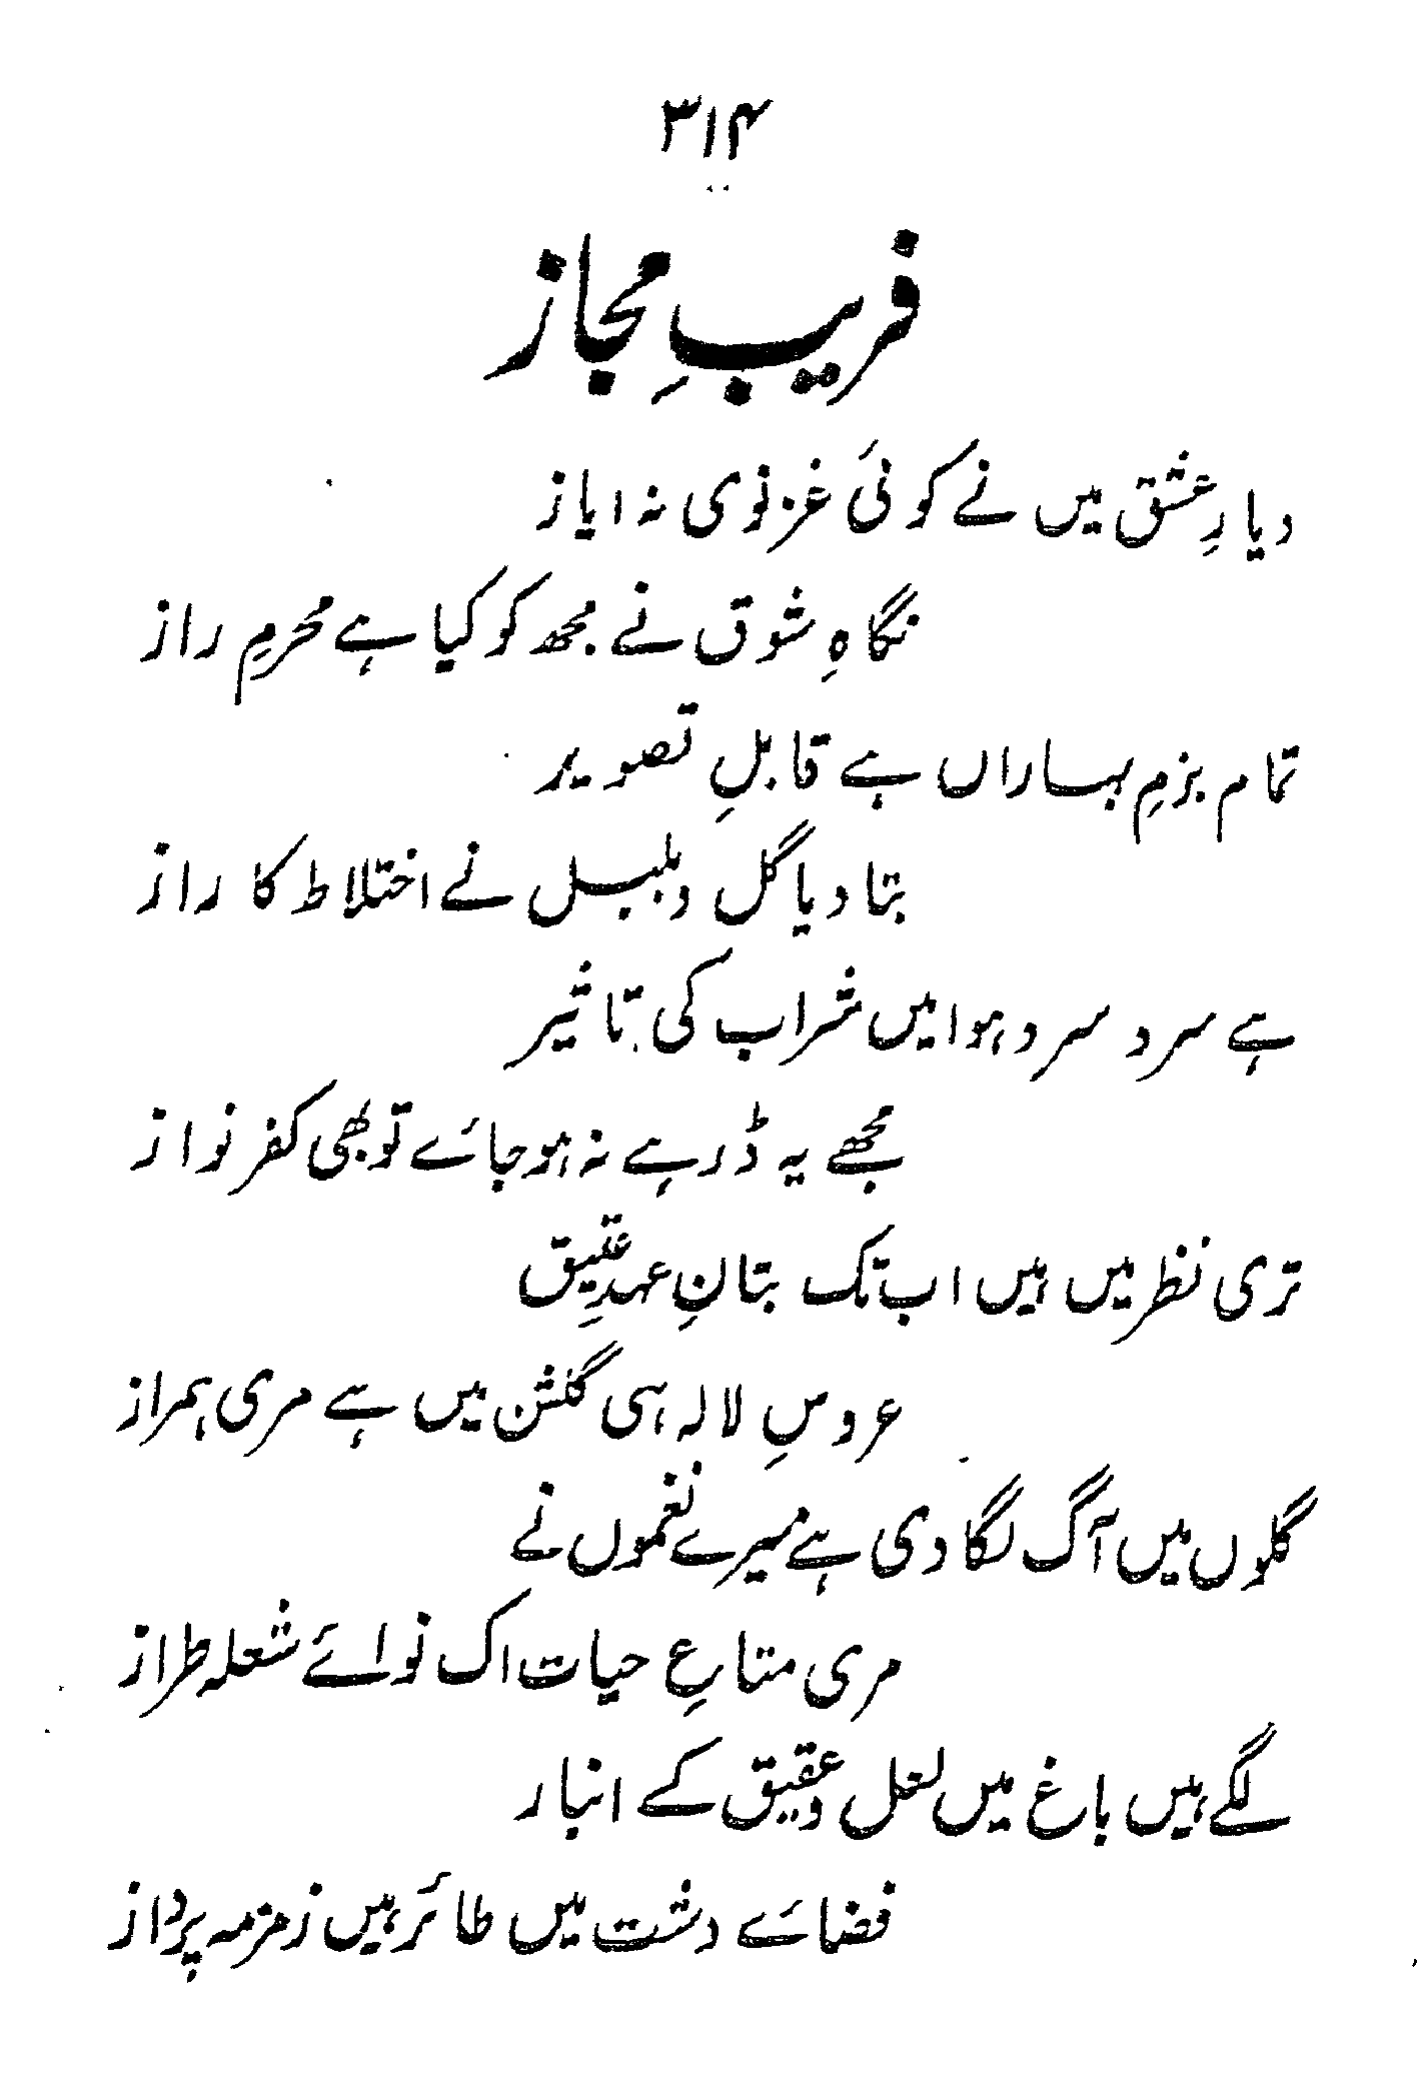 ۳۱۴
فریبِ مجاز
دیارِ عشق میں نے کوئی غزنوی نہ ایاز
نگاہِ شوق نے مجھ کو کیا ہے محرمِ راز
تمام بزمِ بہاراں ہے قابلِ تصویر
بتا دیا گل و بلبل نے اختلاط کا راز
ہے سرد سرد ہوا میں شراب کی تاثیر
مجھے یہ ڈر ہے نہ ہو جائے تو بھی کفر نواز
تری نظر میں ہیں اب تک بتانِ عہدِ عتیق
عروسِ لالہ ہی گلشن میں ہے مری ہمراز
گلوں میں آگ لگا دی ہے میرے نغموں نے
مری متاعِ حیات اک نوائے شعلہ طراز
لگے ہیں باغ میں لعل و عقیق کے انبار
فضائے دشت میں طائر ہیں زمزمہ پرداز